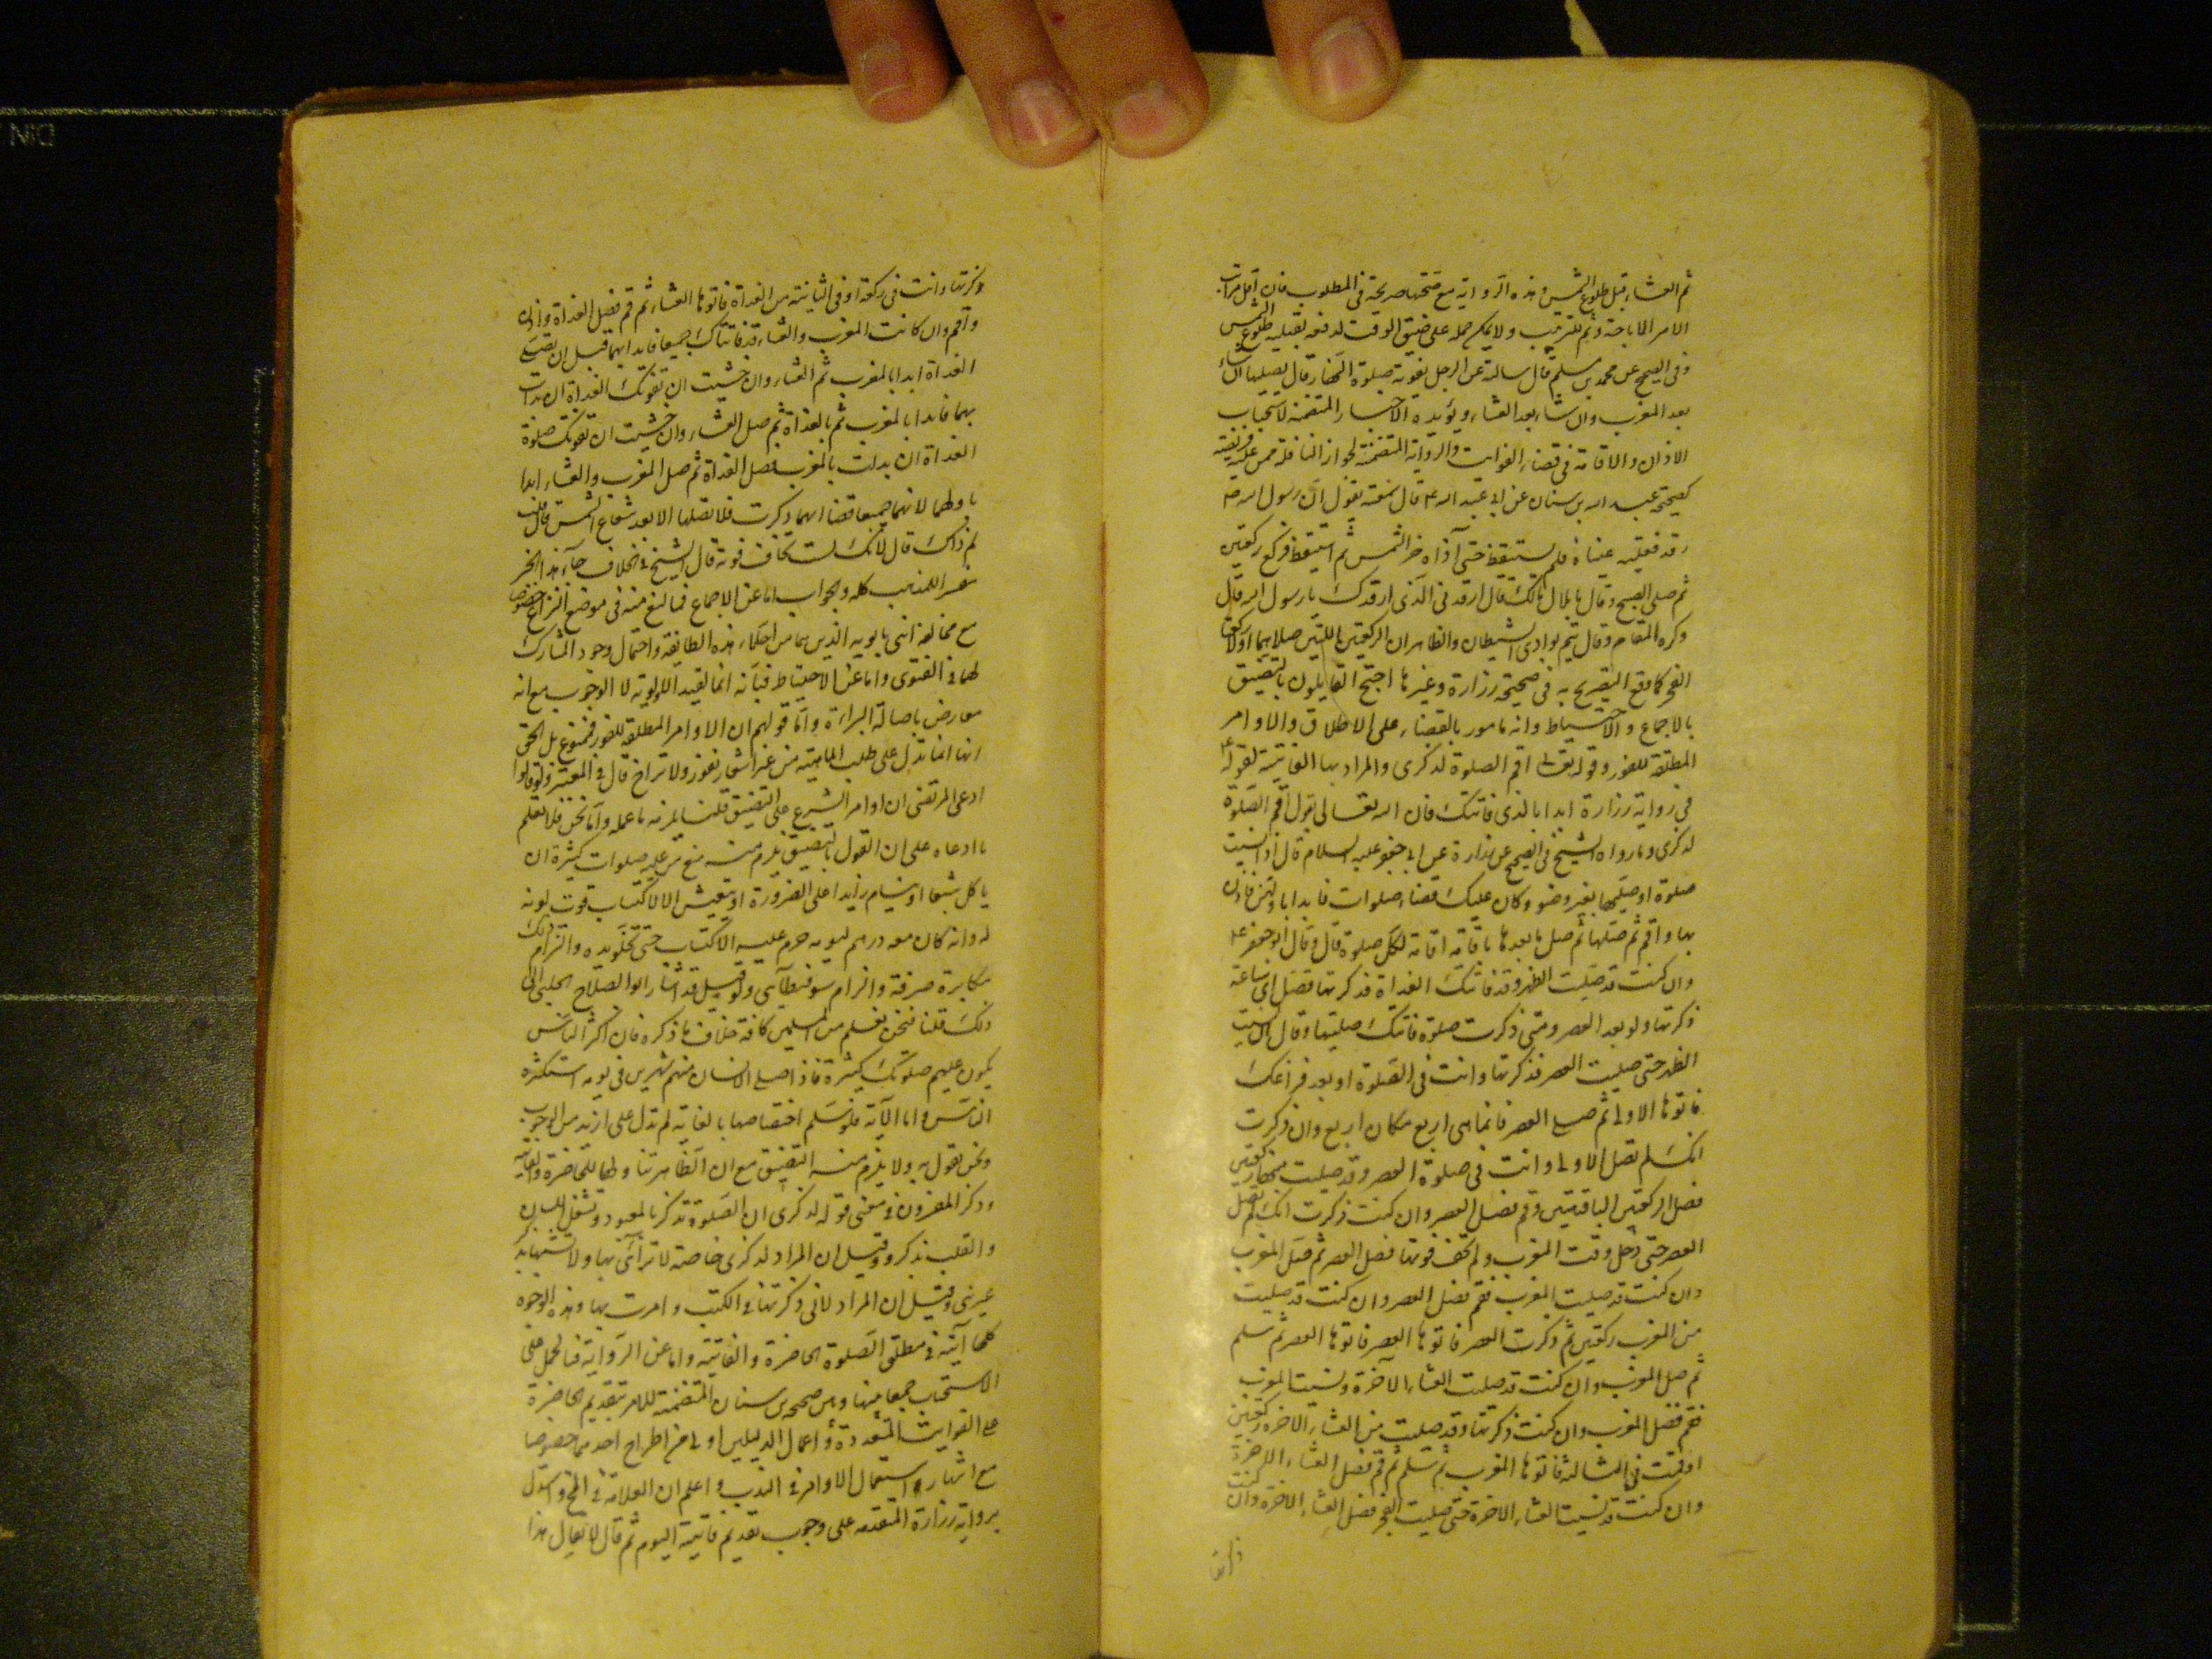 ثم العشاء قبل طلوع الشمس وهذه الرواية مع صحتها صريحة في المطلوب فان اقل مراتب
الامر الاباحة وثم للترتيب ولا يمكن حمله على ضيق الوقت لدفعه بقبلية طلوع الشمس
وفي الصحيح عن محمد بن مسلم قال سالته عن الرجل تفوته صلوة النهار قال يصليها ان شاء
بعد المغرب وان شاء بعد العشاء ويؤيده الاخبار المتضمنة لاستحباب
الاذان والاقامة في قضاء الفوايت والرواية المتضمنة لجواز النافلة ممن عليه فريضة
كصحيحة عبد الله بن سنان عن ابي عبد الله ع قال سمعته يقول ان رسول الله ص
رقد فغلبته عيناه فلم يستيقظ حتى آذاه حر الشمس ثم استيقظ فركع ركعتين
ثم صلى الصبح وقال يا بلال مالك قال ارقدني الذي ارقدك يا رسول الله قال
وكره المقام وقال نتم بوادي الشيطان والظاهر ان الركعتين اللتين صلاهما اولا ركعتا
الفجر كما وقع التصريح به في صحيحة زرارة وغيرها احتج القايلون بالتضييق
بالاجماع والاحتياط وانه مامور بالقضاء على الاطلاق والاوامر
المطلقة للفور وقوله تعالى اقم الصلوة لذكري والمراد بها الفائتة لقوله ع
في رواية زرارة ابدا بالذي فاتتك فان الله تعالى يقول اقم الصلوة
لذكري وما رواه الشيخ في الصحيح عن زرارة عن ابي جعفر عليه السلام قال اذا نسيت
صلوة او صليتها بغير وضوء وكان عليك قضاء صلوات فابدا باولهن فاذن
بها واقم ثم صلها ثم صل ما بعدها باقامة اقامة لكل صلوة قال وقال ابو جعفر ع
وان كنت قد صليت الظهر وقد فاتتك الغداة فذكرتها فصل اي ساعة
ذكرتها ولو بعد العصر ومتى ذكرت صلوة فاتتك صليتها وقال ان نسيت
الظهر حتى صليت العصر فذكرتها وانت في الصلوة او بعد فراغك
فانوها الاولى ثم صل العصر فانما هي اربع مكان اربع وان ذكرت
انك لم تصل الاولى وانت في صلوة العصر وقد صليت منها ركعتين
فصل الركعتين الباقيتين وقم فصل العصر وان كنت ذكرت انك لم تصل
العصر حتى دخل وقت المغرب ولم تخف فوتها فصل العصر ثم صل المغرب
وان كنت قد صليت المغرب فقم فصل العصر وان كنت قد صليت
من المغرب ركعتين ثم ذكرت العصر فانوها العصر فانوها العصر ثم سلم
ثم صل المغرب وان كنت قد صليت العشاء الآخرة ونسيت المغرب
فقم فصل المغرب وان كنت ذكرتها وقد صليت من العشاء الاخرة ركعتين
او قمت في الثالثة فانوها المغرب ثم سلم ثم قم فصل العشاء الاخرة
وان كنت قد نسيت العشاء الاخرة حتى صليت الفجر فصل العشاء الاخرة وان كنت
ذكرتها وانت في ركعة او في الثانية من الغداة فانوها العشاء ثم قم فصل الغداة واذن
واقم وان كانت المغرب والعشاء قد فاتتاك جميعا فابدا بهما قبل ان تصلي
الغداة ابدا بالمغرب ثم العشاء وان خشيت ان تفوتك الغداة ان بدات
بهما فابدا بالمغرب ثم بالغداة ثم صل العشاء وان خشيت ان تفوتك صلوة
الغداة ان بدات بالمغرب فصل الغداة ثم صل المغرب والعشاء ابدا
باولهما لانهما جميعا قضاء ايهما ذكرت فلا تصلها الا بعد شعاع الشمس قال قلت
لم ذاك قال لانك لست تخاف فوته قال الشيخ في الخلاف جاء هذا الخبر
مفسرا للمذهب كله والجواب اما عن الاجماع فبالمنع منه في موضع النزاع خصوصا
مع مخالفة ابني بابويه الذين هما من اجلاء هذه الطايفة واحتمال وجود المشارك
لهما في الفتوى واما عن الاحتياط فبانه انما يفيد الاولوية لا الوجوب مع انه
معارض باصالة البراءة واما قولهم ان الاوامر المطلقة للفور فممنوع بل الحق
انها انما تدل على طلب الماهية من غير اشعار بفور ولا تراخ قال في المعتبر ولو قالوا
ادعى المرتضى ان اوامر الشرع على التضييق قلنا يلزمه ما علمه واما نحن فلا نعلم
ما ادعاه على ان القول بالتضييق يلزم منه منع من عليه صلوات كثيرة ان
ياكل شبعا او ينام زايدا على الضرورة او يتعيش الا لاكتساب قوت يومه
له وانه كان معه درهم ليومه حرم عليه الاكتساب حتى تخلو يده والتزام ذلك
مكابرة صرفة والتزام سوفسطائي ولو قيل قد اشار ابو الصلاح الحلبي الى
ذلك قلنا فنحن نعلم من المسلمين كافة خلاف ما ذكره فان اكثر الناس
يكون عليهم صلوات كثيرة فاذا صلى الانسان منهم شهرين في يومه استكثره
الناس واما الآية فلو سلم اختصاصها بالفايتة لم تدل على ازيد من الوجوب
ونحن نقول به ولا يلزم منه التضييق مع ان الظاهر تناولها للحاضرة والفايتة
وذكر المفسرون في معنى قوله لذكري ان الصلوة تذكر بالمعبود وتشغل اللسان
والقلب بذكره وقيل ان المراد لذكري خاصة لا ترائي بها ولا تشبها بذكر
غيري وقيل ان المراد لاني ذكرتها في الكتب وامرت بها وهذه الوجوه
كلها آتية في مطلق الصلوة الحاضرة والفايتة واما عن الرواية فبالحمل على
الاستحباب جمعا بينها وبين صحيحة بن سنان المتضمنة للامر بتقديم الحاضرة
على الفوايت المتعددة واعمال الدليلين اولى من اطراح احدهما خصوصا
مع اشتهار استعمال الاوامر في الندب واعلم ان العلامة في المخ استدل
برواية زرارة المتقدمة على وجوب تقديم فايتة اليوم ثم قال لا يقال هذا